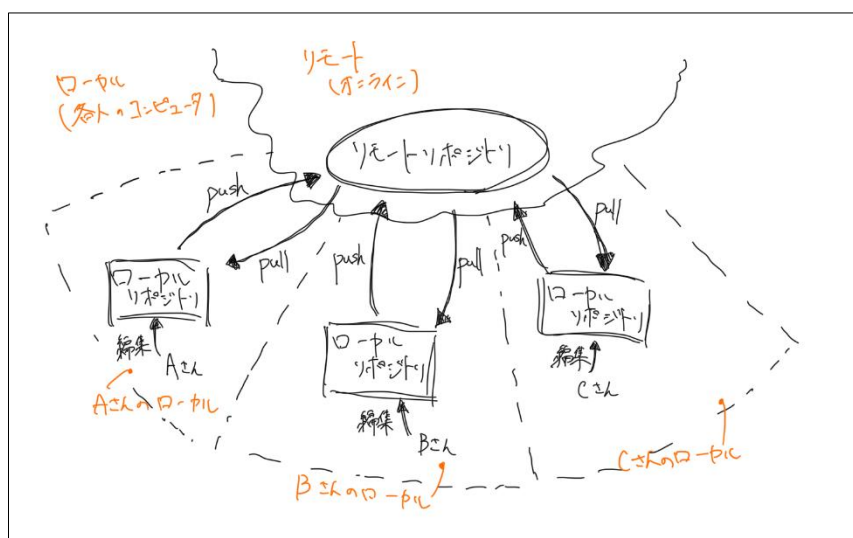 ローカル
(各人のコンピュータ)
リモート
(オンライン)
リモートリポジトリ
push
pull
push
pull
push
pull
ローカル
リポジトリ
編集
Aさん
Aさんのローカル
ローカル
リポジトリ
編集
Bさん
Bさんのローカル
ローカル
リポジトリ
編集
Cさん
Cさんのローカル